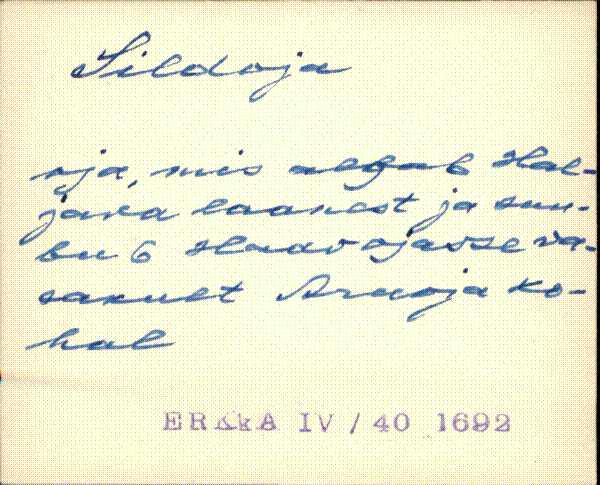 Sildoja
oja, mis algab Hal-
java laanest ja suu-
bub Haavojasse va-
sakult Aruoja ko-
hal
ERKkA IV / 40 1692